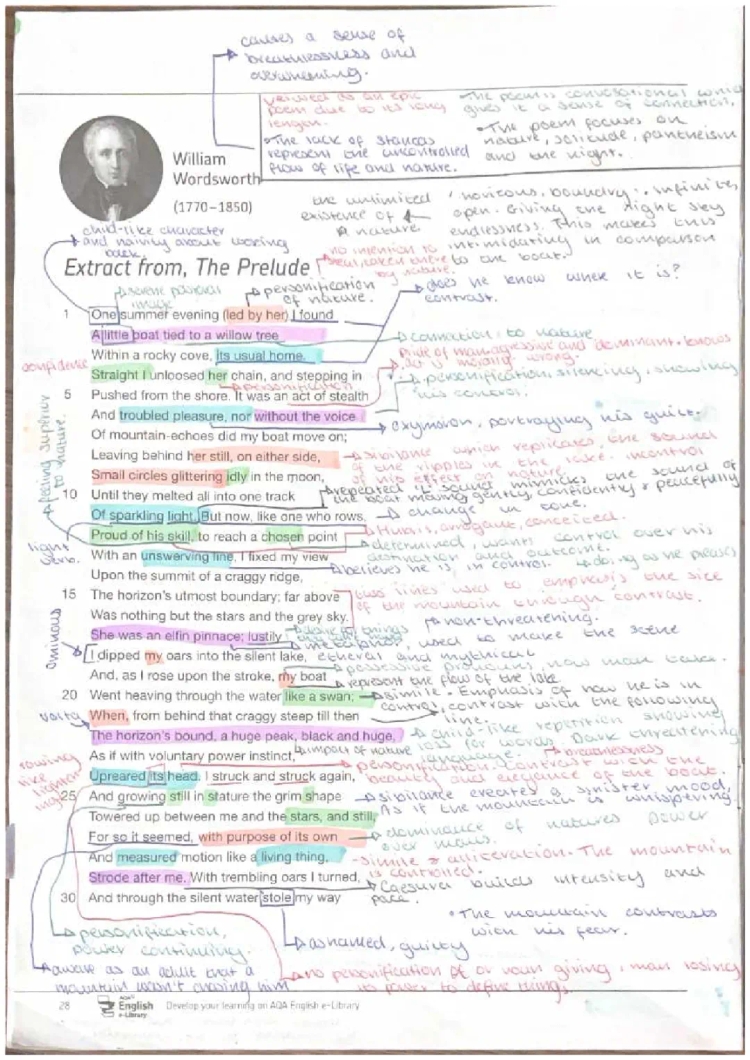 causes a sense of
breathlessness and
overwhelming.
viewed as an epic
poem due to its long
length.
• The lack of stanzas
represent the uncontrolled
flow of life and nature.
• The poem is conversational which
gives it a sense of connection.
• The poem focuses on
nature, solitude, pantheism
and the night.
William
Wordsworth
(1770–1850)
the unlimited
existence of
nature
horizons, boundry: infinite,
open. Giving the night sky
endlessness. This makes this
intimidating in comparison
to the boat.
child-like character
and naivity about
back.
no intention to
by nature.
Extract from, The Prelude
personification
of nature.
does he know where it is?
contrast.
1 One summer evening (led by her) I found
A little boat tied to a willow tree
connection to nature
Within a rocky cove, its usual home.
pride of man, aggressive and dominant. knows
act is morally wrong.
confidence
Straight I unloosed her chain, and stepping in
personification
personification, silencing, showing
his control.
5 Pushed from the shore. It was an act of stealth
And troubled pleasure, nor without the voice
oxymoron, portraying his guilt.
Of mountain-echoes did my boat move on;
feeling superior
to nature.
Leaving behind her still, on either side,
sibilance which replicates the sound
of the ripples in the lake. in control
of his effect on nature.
Small circles glittering idly in the moon,
repeated 'l' sound mimicks the sound of
the boat moving gently, confidently & peacefully
10 Until they melted all into one track
Of sparkling light. But now, like one who rows,
change in tone.
Proud of his skill, to reach a chosen point
Hubris, arrogant, conceited.
determined, wants control over his
destination and outcome.
light
verb.
With an unswerving line, I fixed my view
believes he is in control.
doing as he pleases
Upon the summit of a craggy ridge,
15 The horizon's utmost boundary; far above
two lines used to emphasis the size
of the mountain through contrast.
Was nothing but the stars and the grey sky.
non-threatening.
ominous
She was an elfin pinnace; lustily
metaphor, used to make the scene
I dipped my oars into the silent lake,
etheral and mythical
possesive pronouns, how man take.
And, as I rose upon the stroke, my boat
represent the flow of the lake
20 Went heaving through the water like a swan;
simile. Emphasis of how he is in
control, contrast with the following
line.
volta
When, from behind that craggy steep till then
The horizon's bound, a huge peak, black and huge,
child-like repetition showing
loss for words. Dark threatening
language.
As if with voluntary power instinct,
impact of nature
breathlessness
personification contrast with the
beauty and elegance of the boat.
rowing
like
Upreared its head. I struck and struck again,
25 And growing still in stature the grim shape
sibilance creates a sinister mood,
As if the mountain is whispering
Towered up between me and the stars, and still,
For so it seemed, with purpose of its own
dominance of natures power
over mans.
And measured motion like a living thing,
simile & alliteration. The mountain
is controlled.
Strode after me. With trembling oars I turned,
caesura builds intensity and
pace.
30 And through the silent water stole my way
• The mountain contrasts
with his fear.
personification,
power continuing.
ashamed, guilty
aware as an adult that a
mountain wasn't chasing him
no personification of or noun giving, man losing
its power to define things.
28
AQA
English
e-Library
Develop your learning on AQA English e-Library